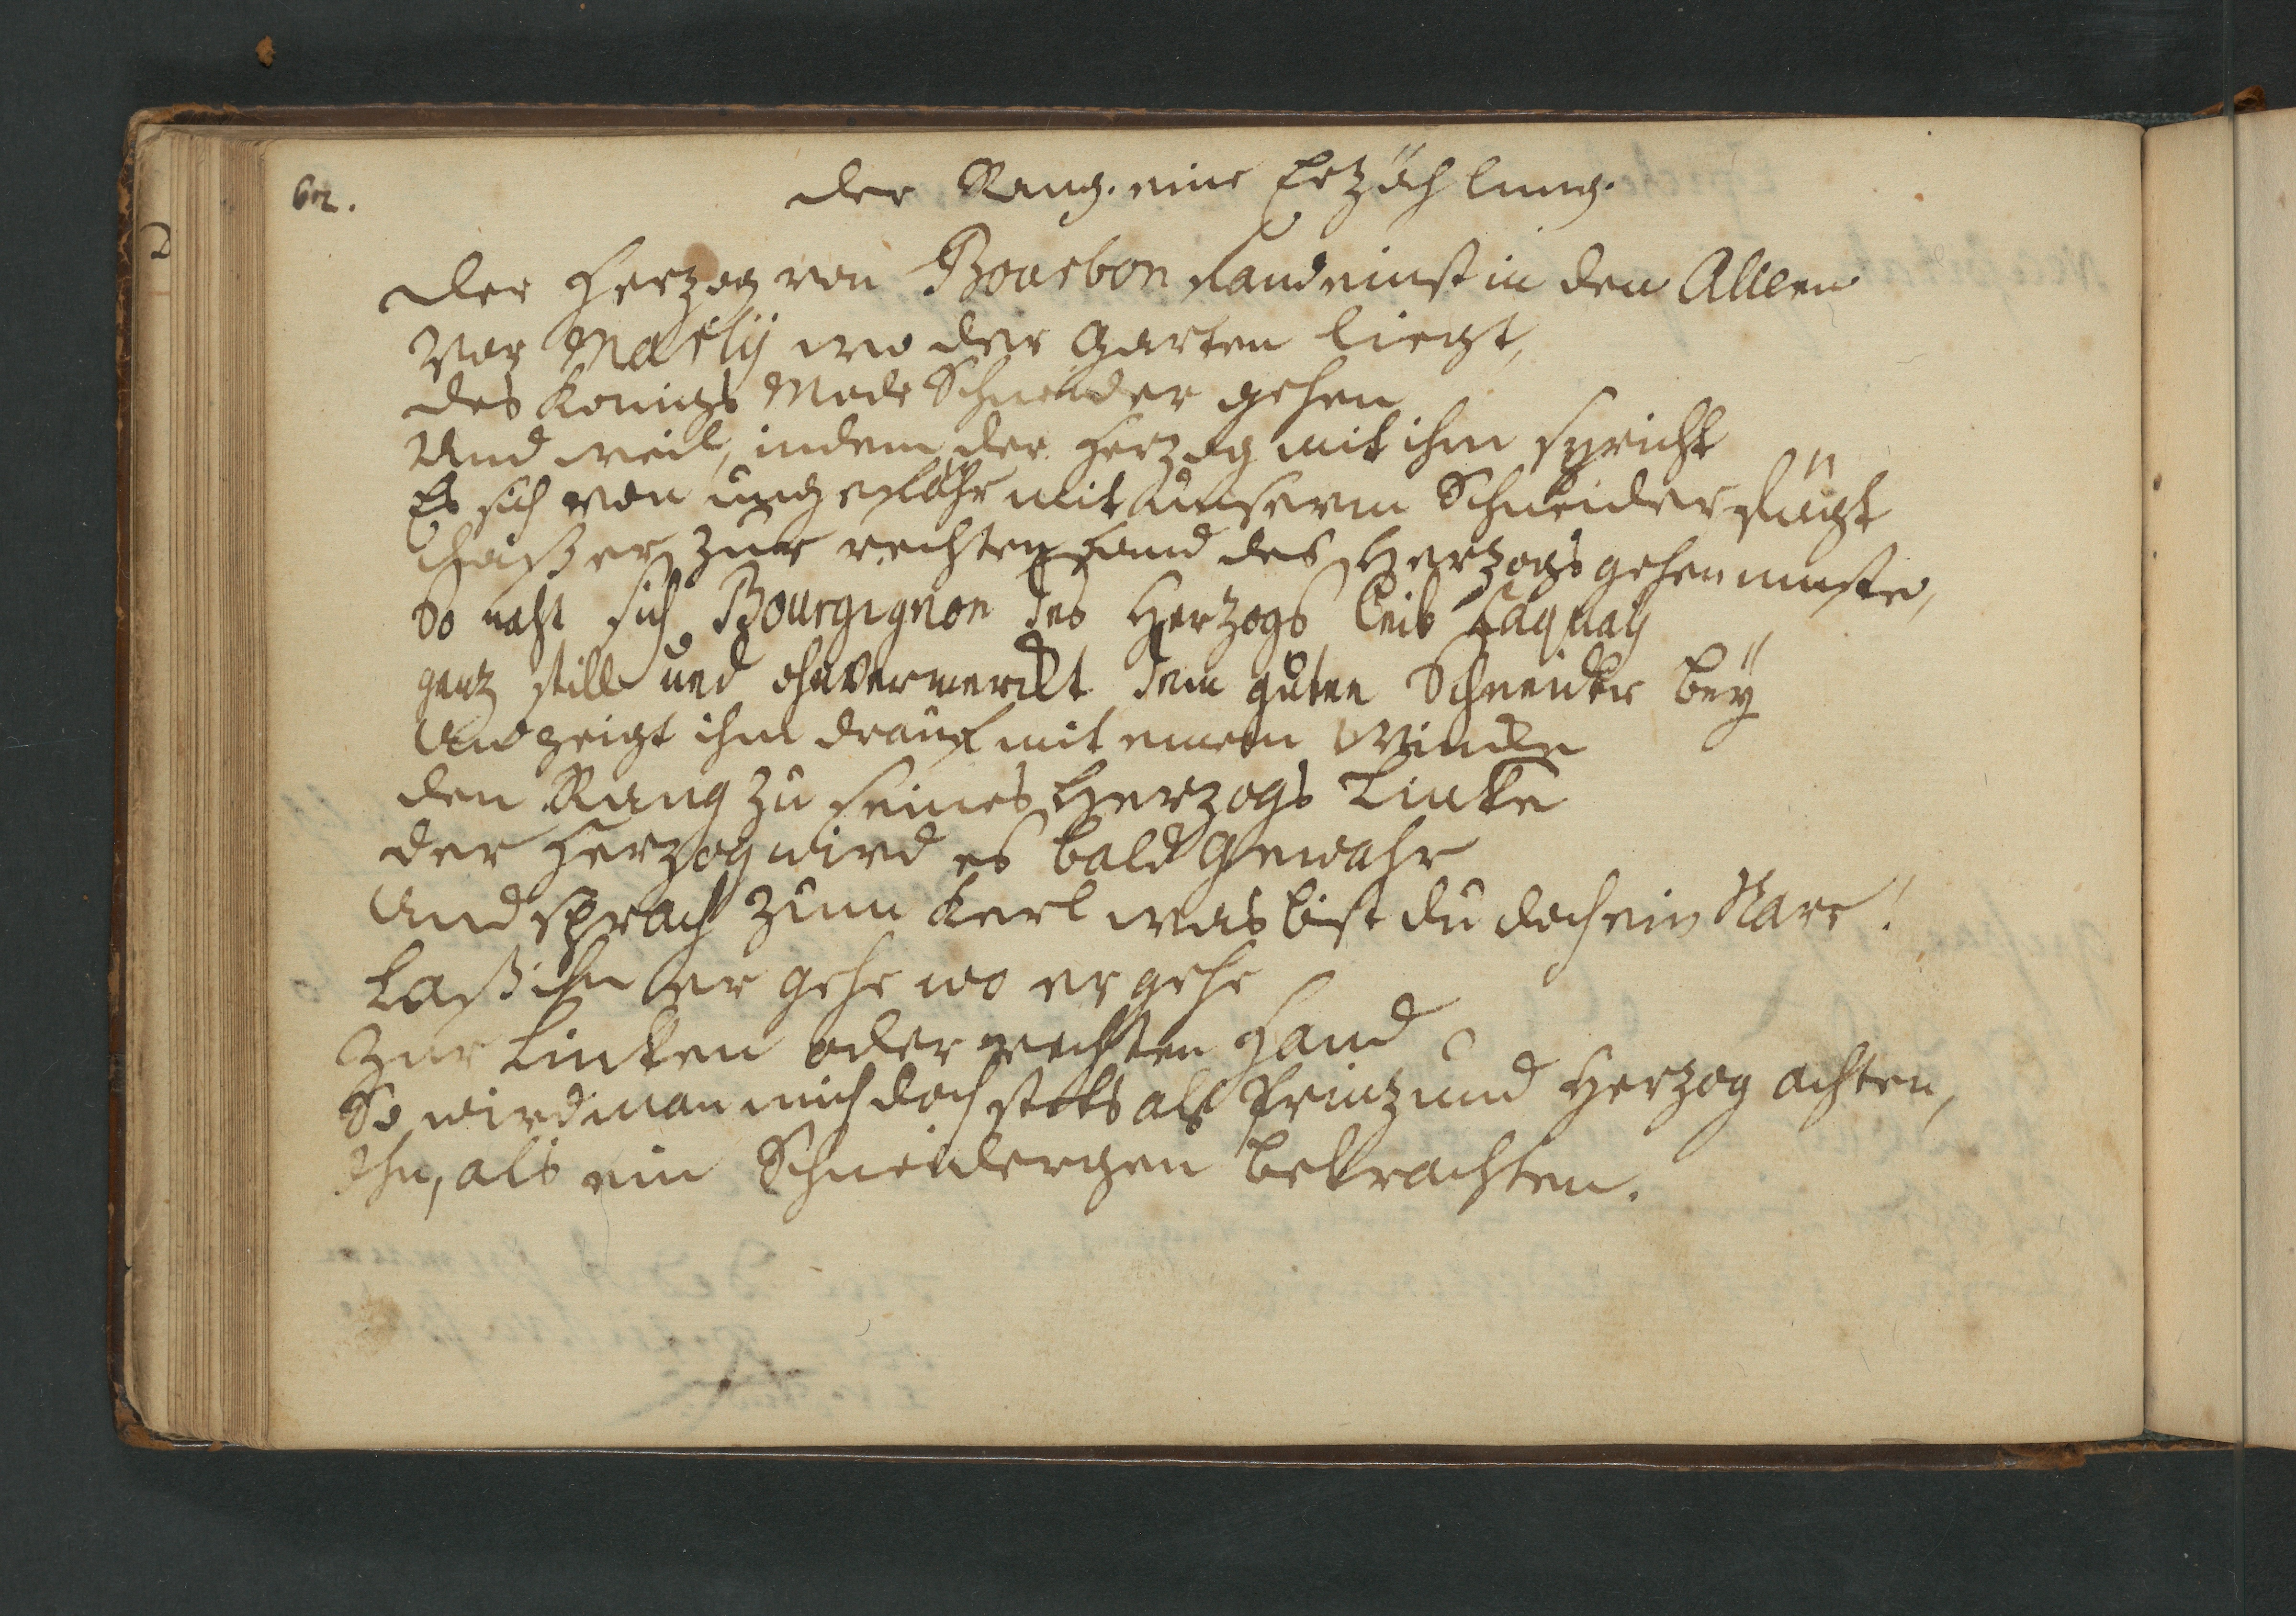 602.
der Rang. eine Ertzöhlung.
der Hertzog von Bourbon fand einst in den Alleen
Vor Marlÿ wo der Garten liegt,
des Konigs Mode Schneider gehen
Und weil, indem der Hertzog mit ihm spricht
Es sich von ungefähr mit unserm Schneider fügt
daß er zur rechten Hand des Hertzogs gehen muste,
So naht sich Bourgignon des Hertzogs leib Laquaÿ
gantz still und ohnvermerckt dem guten Schneider beÿ
Und zeigt ihm drauf mit einem Wincke
den Rang zu seines Hertzogs Lincke
der Hertzog wird es bald gewahr
Und sprach zum Kerl was bist du doch ein Narr!
Laß ihn er gehe wo er gehe
Zur Lincken oder rechten Hand
So wird man mich doch stets als Printz und Hertzog achten,
Ihn, als ein Schneidergen betrachten.